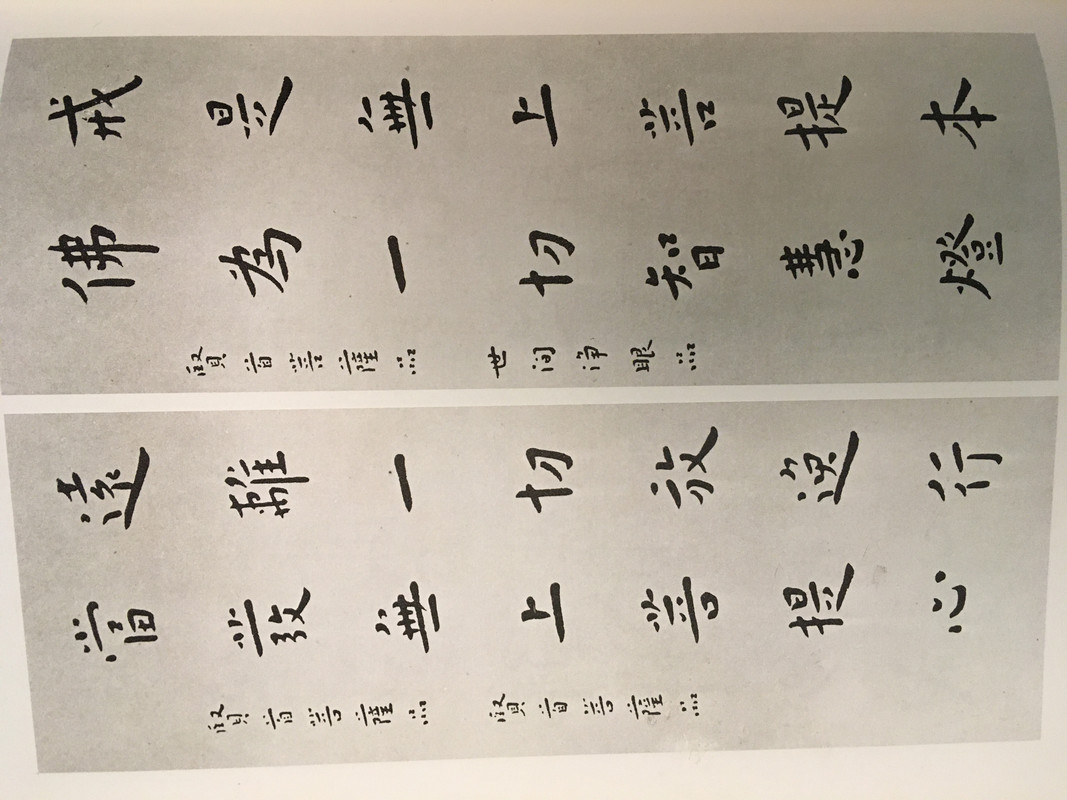 戒是無上菩提本
佛為一切智慧燈
賢首菩薩品 世間淨眼品
遠離一切放逸行
當發無上菩提心
賢首菩薩品 賢首菩薩品